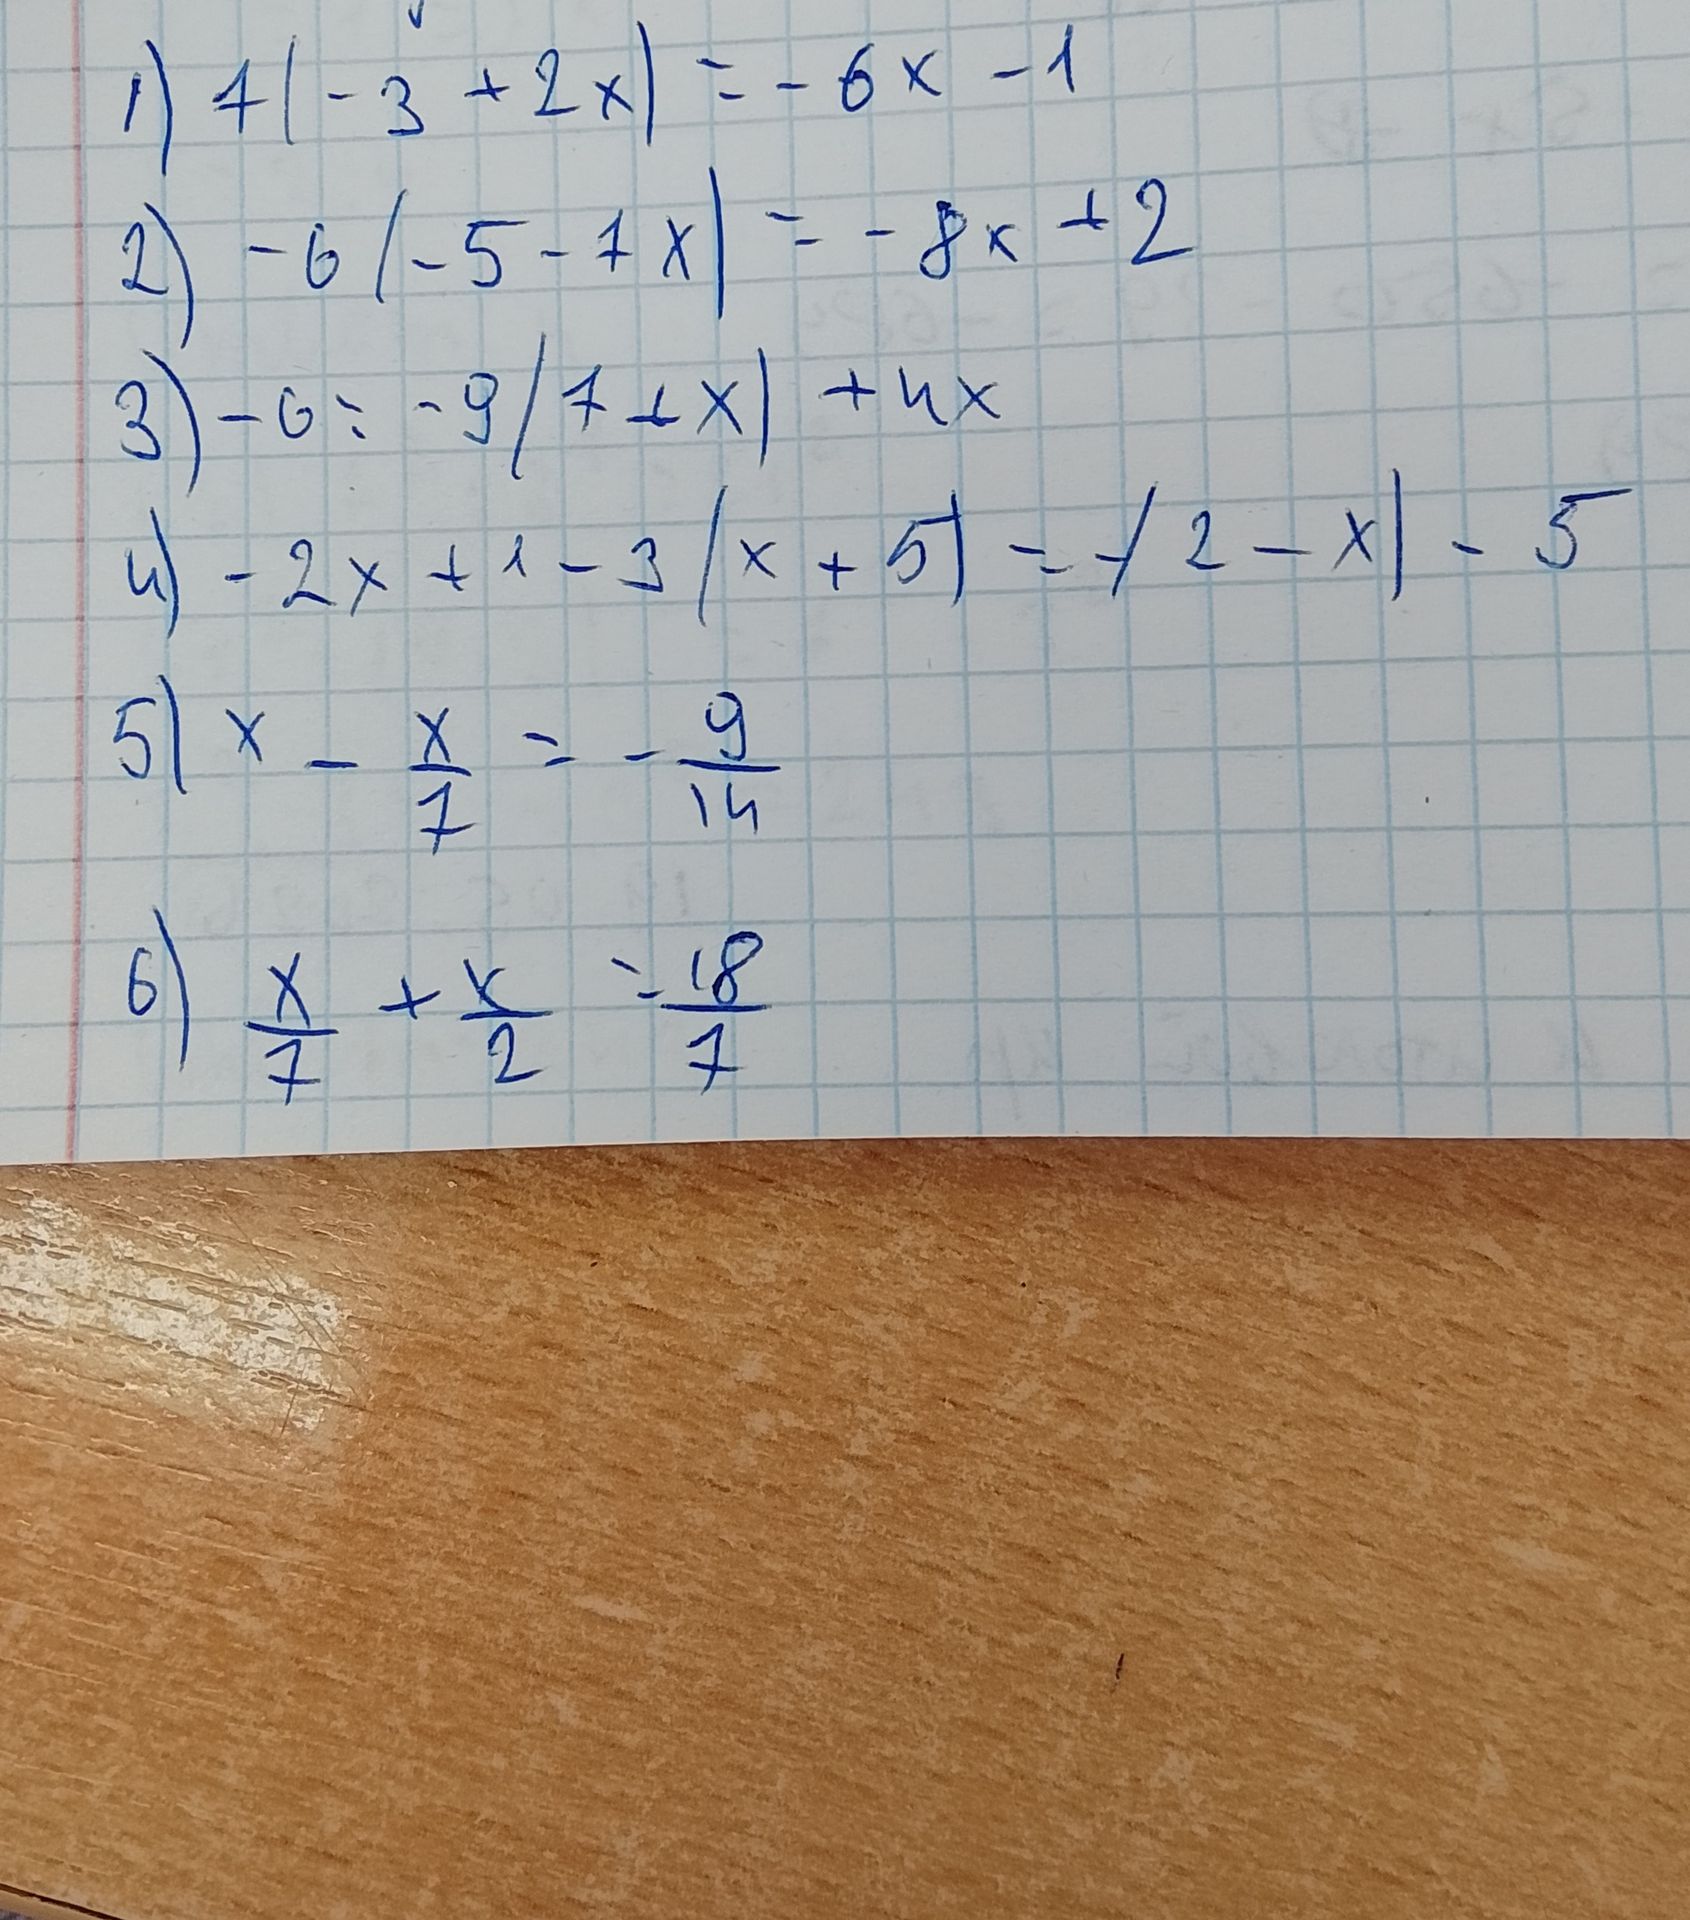 1) 7(-3+2x) = -6x -1
2) -6(-5-7x) = -8x+2
3) -6 = -9(7+x)+4x
4) -2x+1-3(x+5) = -(2-x)-5
5) x - x/7 = - 9/14
6) x/7 + x/2 = 18/7